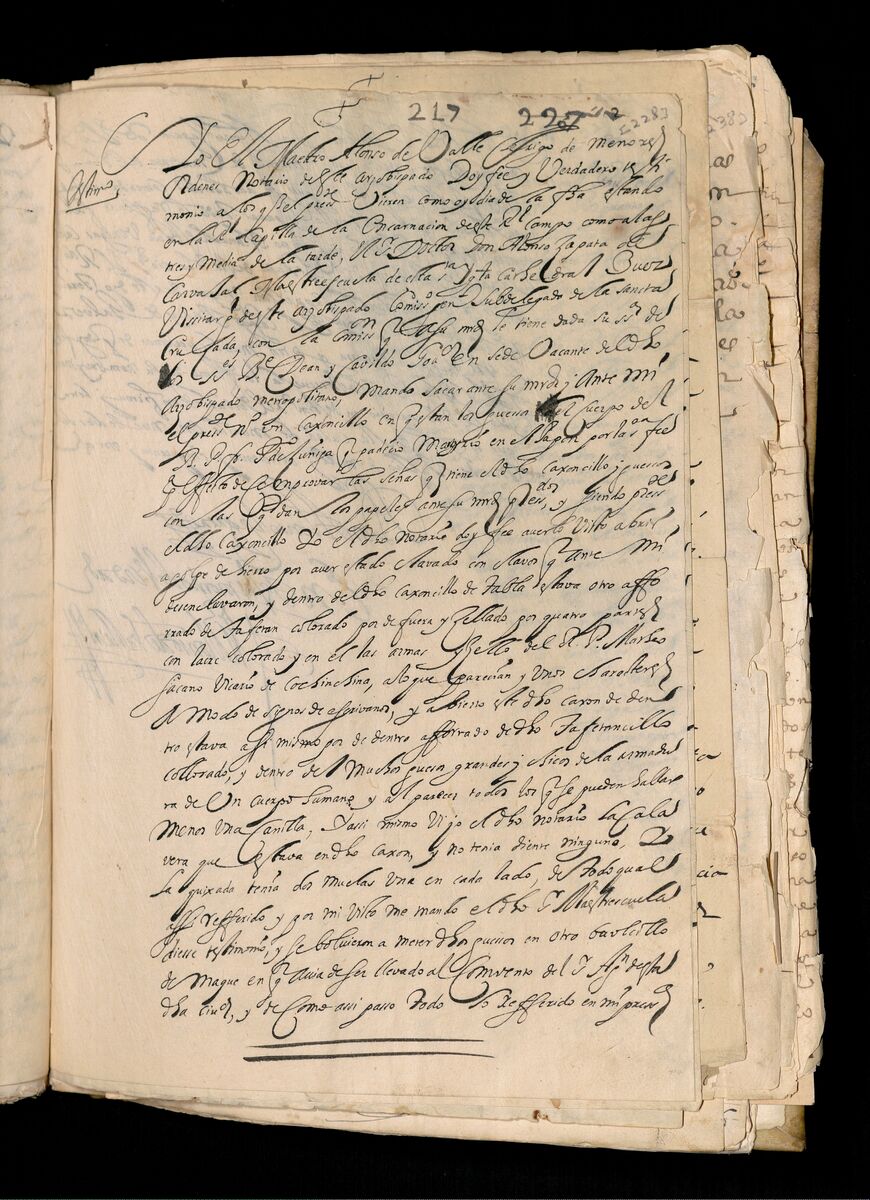 217 227
2283
testimo
Yo El Maestro Alonso de Valle Clerigo de menores
ordenes Notario deste Arçobispado Doy fee y Verdadero testi
monio a los q̃ el presste Vieren como oy dia de la fha estando
en la Rl Capilla de la Encarnacion deste Rl Campo como a las
tres y Media de la tarde, El Sr Doctor Don Alonso Zapata de
Carvajal Maestreescuela de esta sta Ygta Cathedral Juez
Vissitar deste Arçobispado Comisso Subdelegado de la sancta
Cruzada, con la Comisson q̃ a su md le tiene dada su sa de
los SSes Ve Dean y Cavildo Gor en sede Vacante del dho
Arçobispado metropolitano, Mando sacar ante su mrd y Ante Mi
el pressde No un caxoncillo en q̃ estan los guessos del cuerpo del
R. P. fr. Pde Suñiga q̃ padecio Martyrio en el Japon por la sta fee
a effecto de comprovar las señas q̃ tiene el dho caxoncillo y guessos
con las q̃ dan los papeles ante su mrd pressdos, y siendo pressde
el dho caxoncillo Yo el dho Notario doy fee averlo Visto abrir
a golpe de hierro por aver estado clavado con clavos q̃ ante Mi
desenclavaron, y dentro del dho caxoncillo de tabla estava otro affo
rrado de Tafetan colorado por de fuera y Sellado por quatro partes
con lacre colorado y en el las armas y Sello del R. P. Matheo
sacano Vicario de Cochinchina, a lo que parecian, y Unos charateres
A Modo de Signos de escrivanos, y abierto este dho caxon de den
tro estava assi mismo por de dentro afforrado de dho Tafetancillo
collorado, y dentro del Muchos guessos grandes y chicos de la armadu
ra de Un cuerpo humano y al parecer todos los q̃ se pueden hallar
menos una Canilla, Y assi mismo Vi yo el dho Notario La Cala
vera que estava en dho caxon, y no tenia diente ninguno, Y
la quixada tenia dos muelas una en cada lado, de todo qual
assi refferido y por mi Visto me mando el dho Sr Maestreescuela
diesse testimonio, y se bolvieron a meter dhos guessos en otro baulcillo
de maque en q̃ avia de ser llevado al Convento del Sr Agn desta
dha ciud, y de Como assi passo todo lo Refferido en mi press